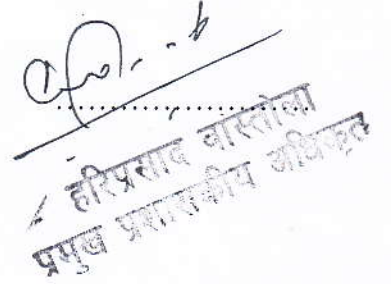 हरिप्रसाद बास्तोला
प्रमुख प्रशासकीय अधिकृत